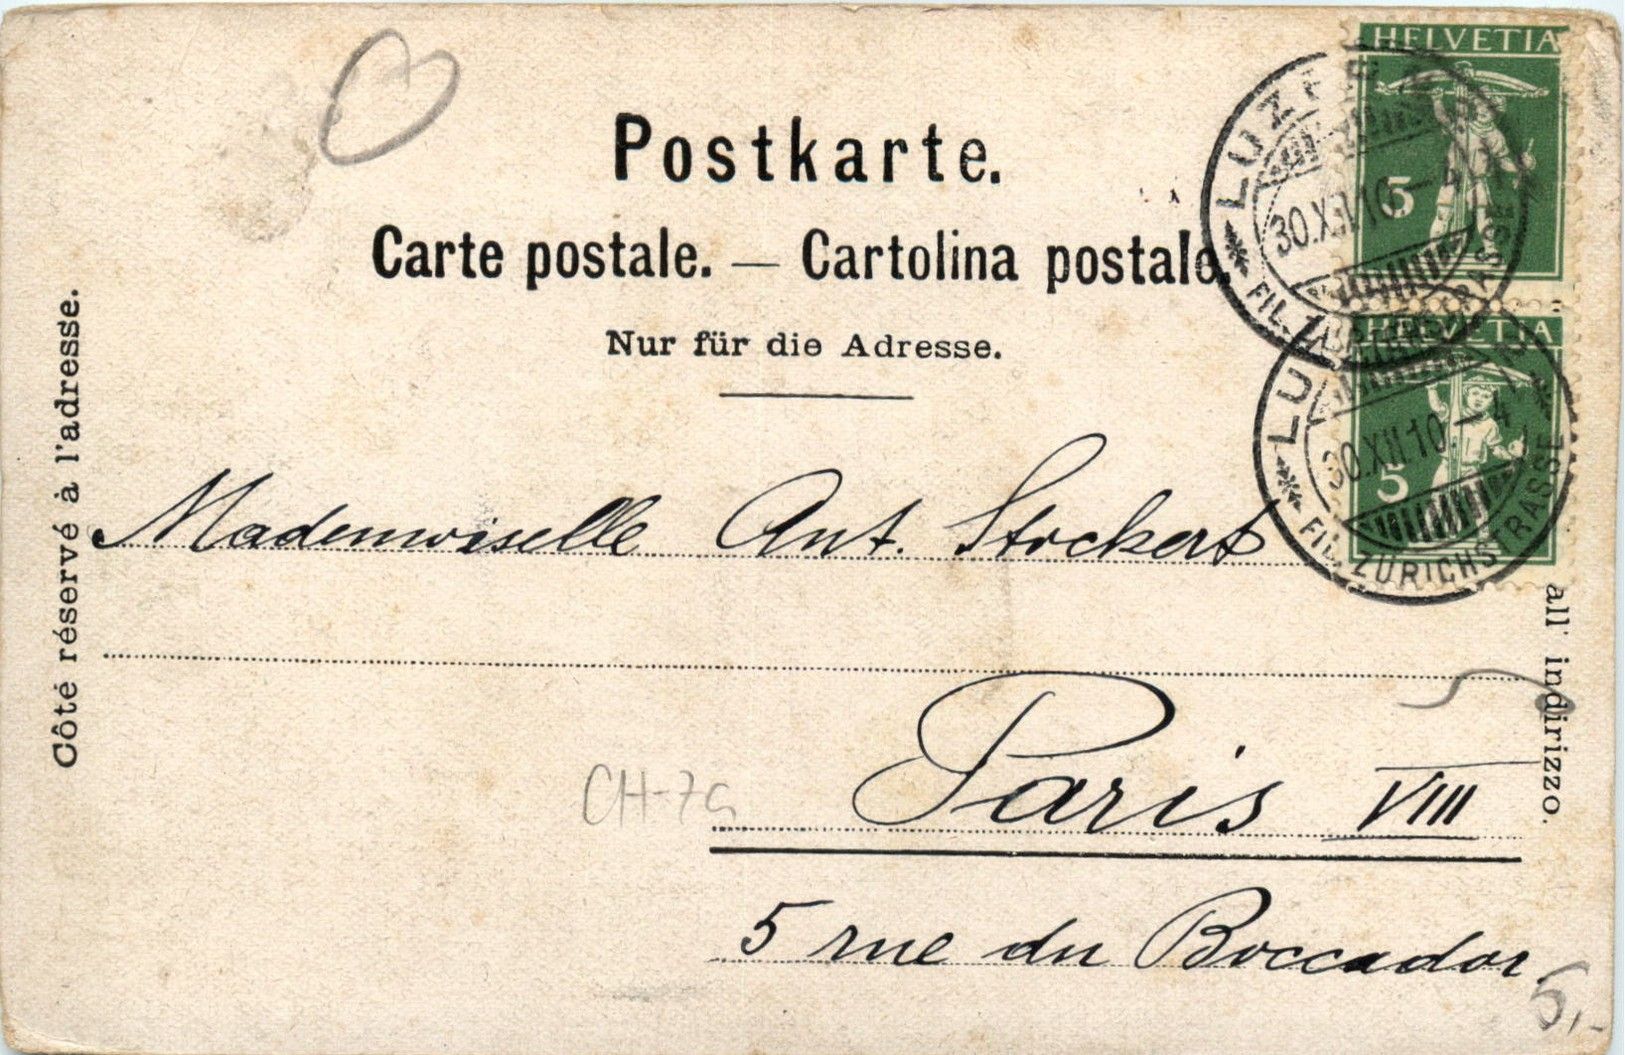 Postkarte.
Carte postale. — Cartolina postale.
Nur für die Adresse.
Côté réservé à l'adresse.
all' indirizzo.
HELVETIA
5
HELVETIA
5
LUZERN
30.XII.10.–4
FIL. ZÜRICHSTRASSE
LU
30.XII.10.–4
FIL. ZÜRICHSTRASSE
Mademoiselle Ant. Stockert
Paris VIII
5 rue du Boccador.
CH-7a
5,-